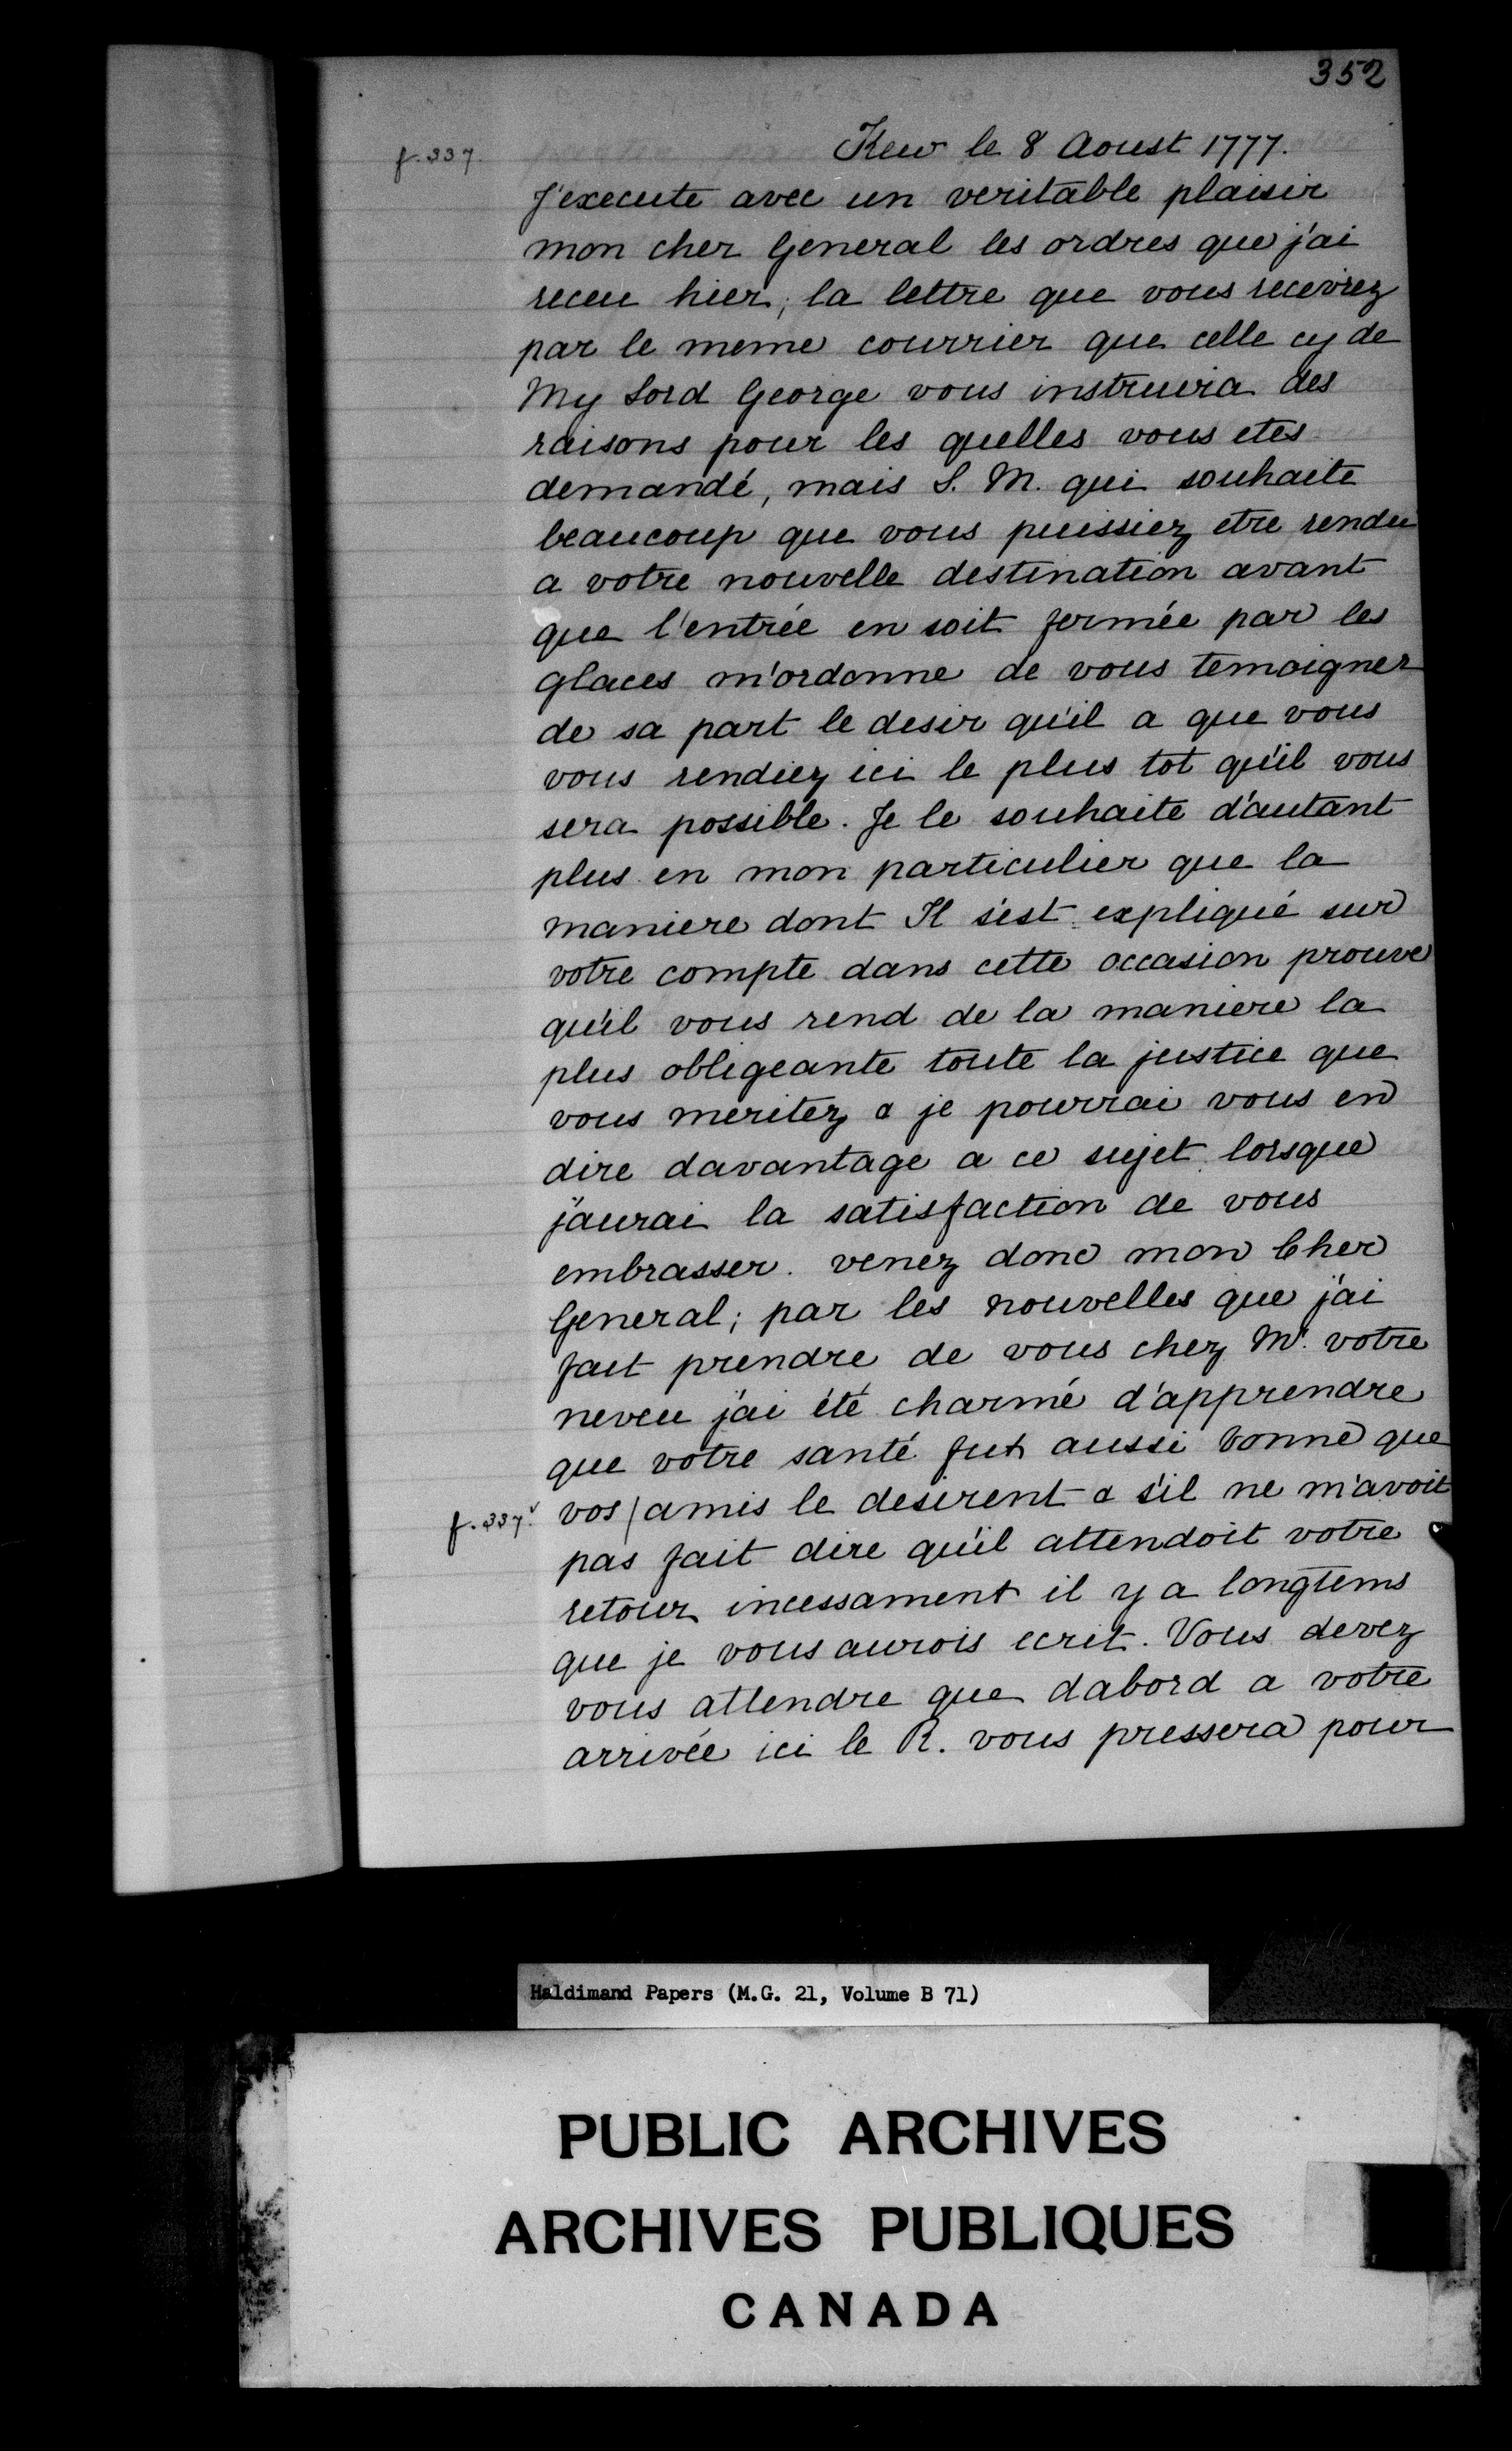 352
f.337. Kew le 8 Aoust 1777.
J'execute avec un veritable plaisir
mon cher General les ordres que j'ai
receu hier; la lettre que vous recevrez
par le meme courrier que celle cy de
My Lord George vous instruira des
raisons pour les quelles vous etes
demandé, mais S. M. qui souhaite
beaucoup que vous puissiez etre rendu
a votre nouvelle destination avant
que l'entrée en soit fermée par les
glaces m'ordonne de vous temoigner
de sa part le desir qu'il a que vous
vous rendiez ici le plus tot qu'il vous
sera possible. Je le souhaite d'autant
plus en mon particulier que la
maniere dont Il s'est expliqué sur
votre compte dans cette occasion prouve
qu'il vous rend de la maniere la
plus obligeante toute la justice que
vous meritez & je pourrai vous en
dire davantage a ce sujet lorsque
j'aurai la satisfaction de vous
embrasser. venez donc mon Cher
General; par les nouvelles que j'ai
fait prendre de vous chez Mr. votre
neveu j'ai été charmé d'apprendre
que votre santé fut aussi bonne que
f.337.v vos / amis le desirent & s'il ne m'avoit
pas fait dire qu'il attendoit votre
retour incessament il y a longtems
que je vous aurois ecrit. Vous devez
vous attendre que dabord a votre
arrivée ici le R. vous pressera pour
Haldimand Papers (M.G. 21, Volume B 71)
PUBLIC ARCHIVES
ARCHIVES PUBLIQUES
CANADA